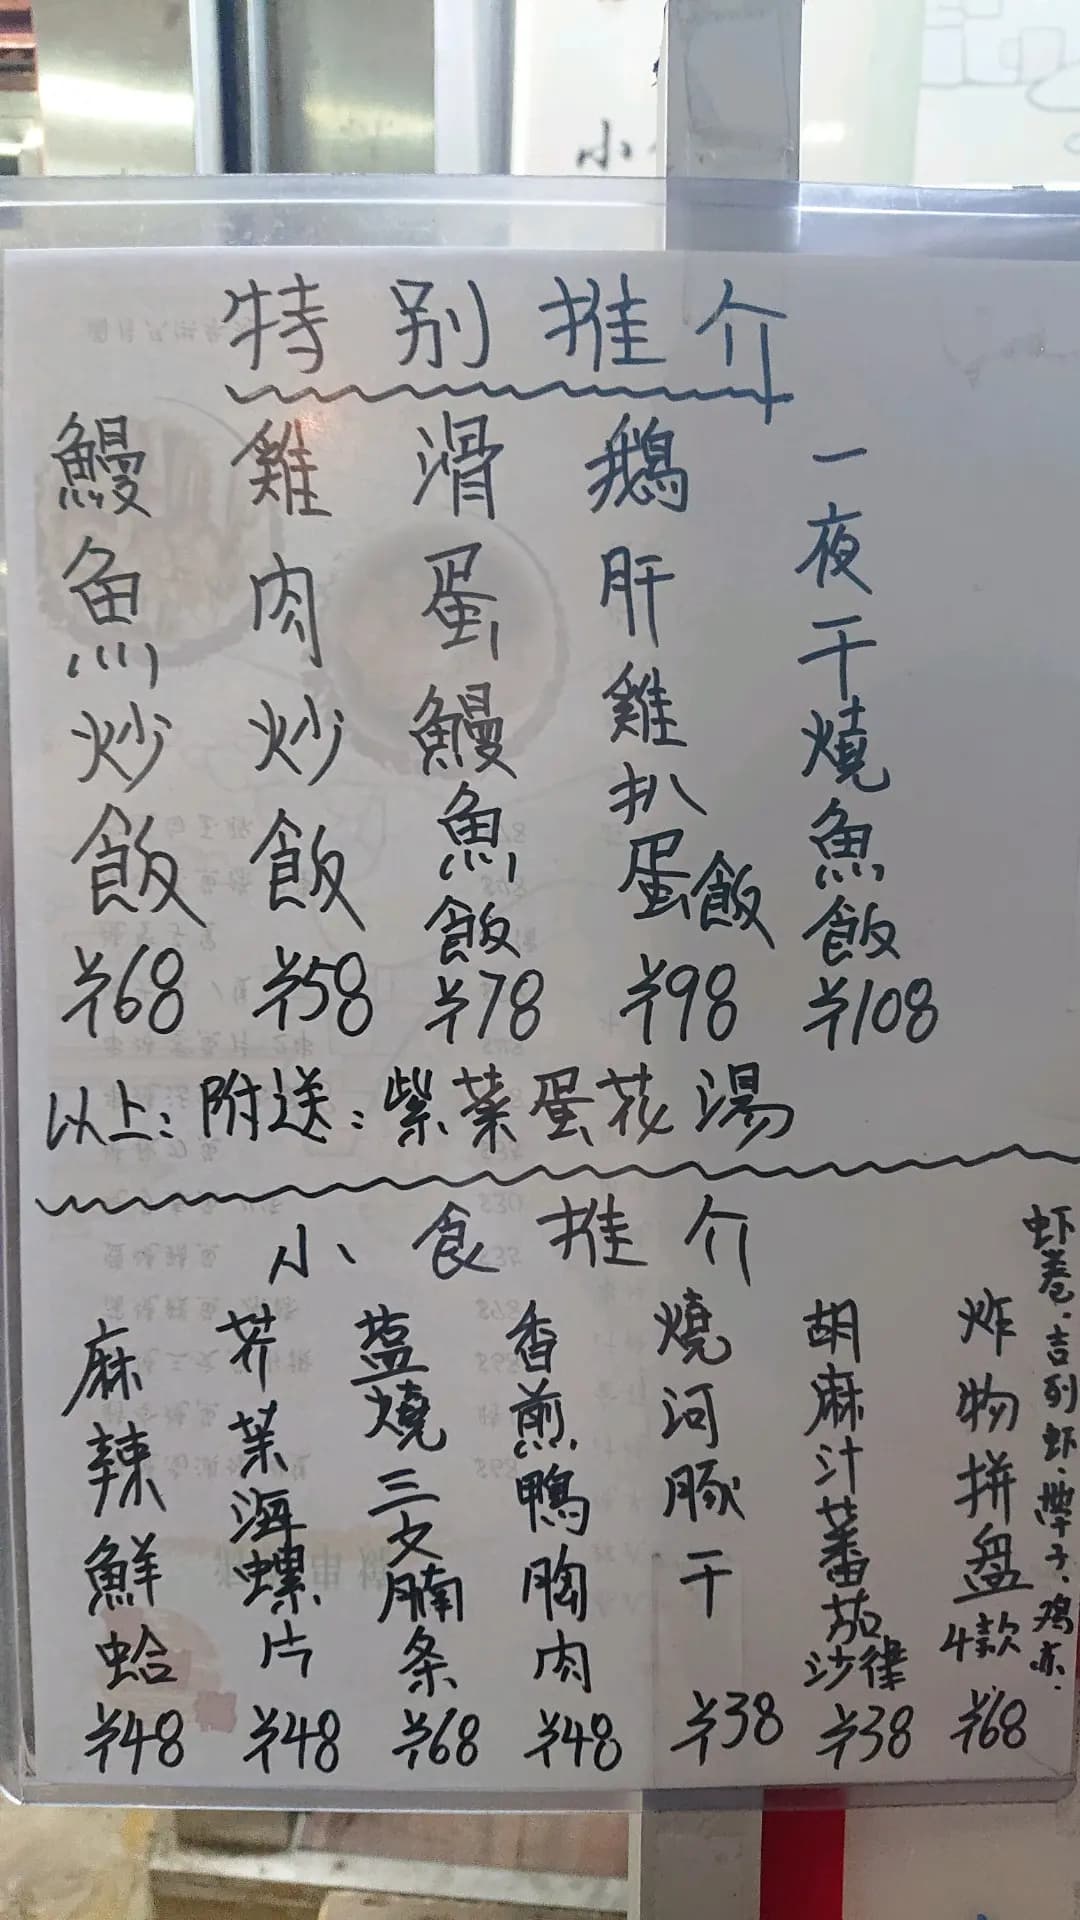 特别推介
鰻魚炒飯
¥68
雞肉炒飯
¥58
滑蛋鰻魚飯
¥78
鵝肝雞扒蛋飯
¥98
一夜干燒魚飯
¥108
以上：附送：紫菜蛋花湯
小食推介
麻辣鮮蛤
¥48
芥菜海螺片
¥48
盐燒三文腩条
¥68
香煎鴨胸肉
¥48
燒河豚干
¥38
胡麻汁蕃茄沙律
¥38
炸物拼盘4款
¥68
虾卷.吉列虾.帶子.鸡亦.
小